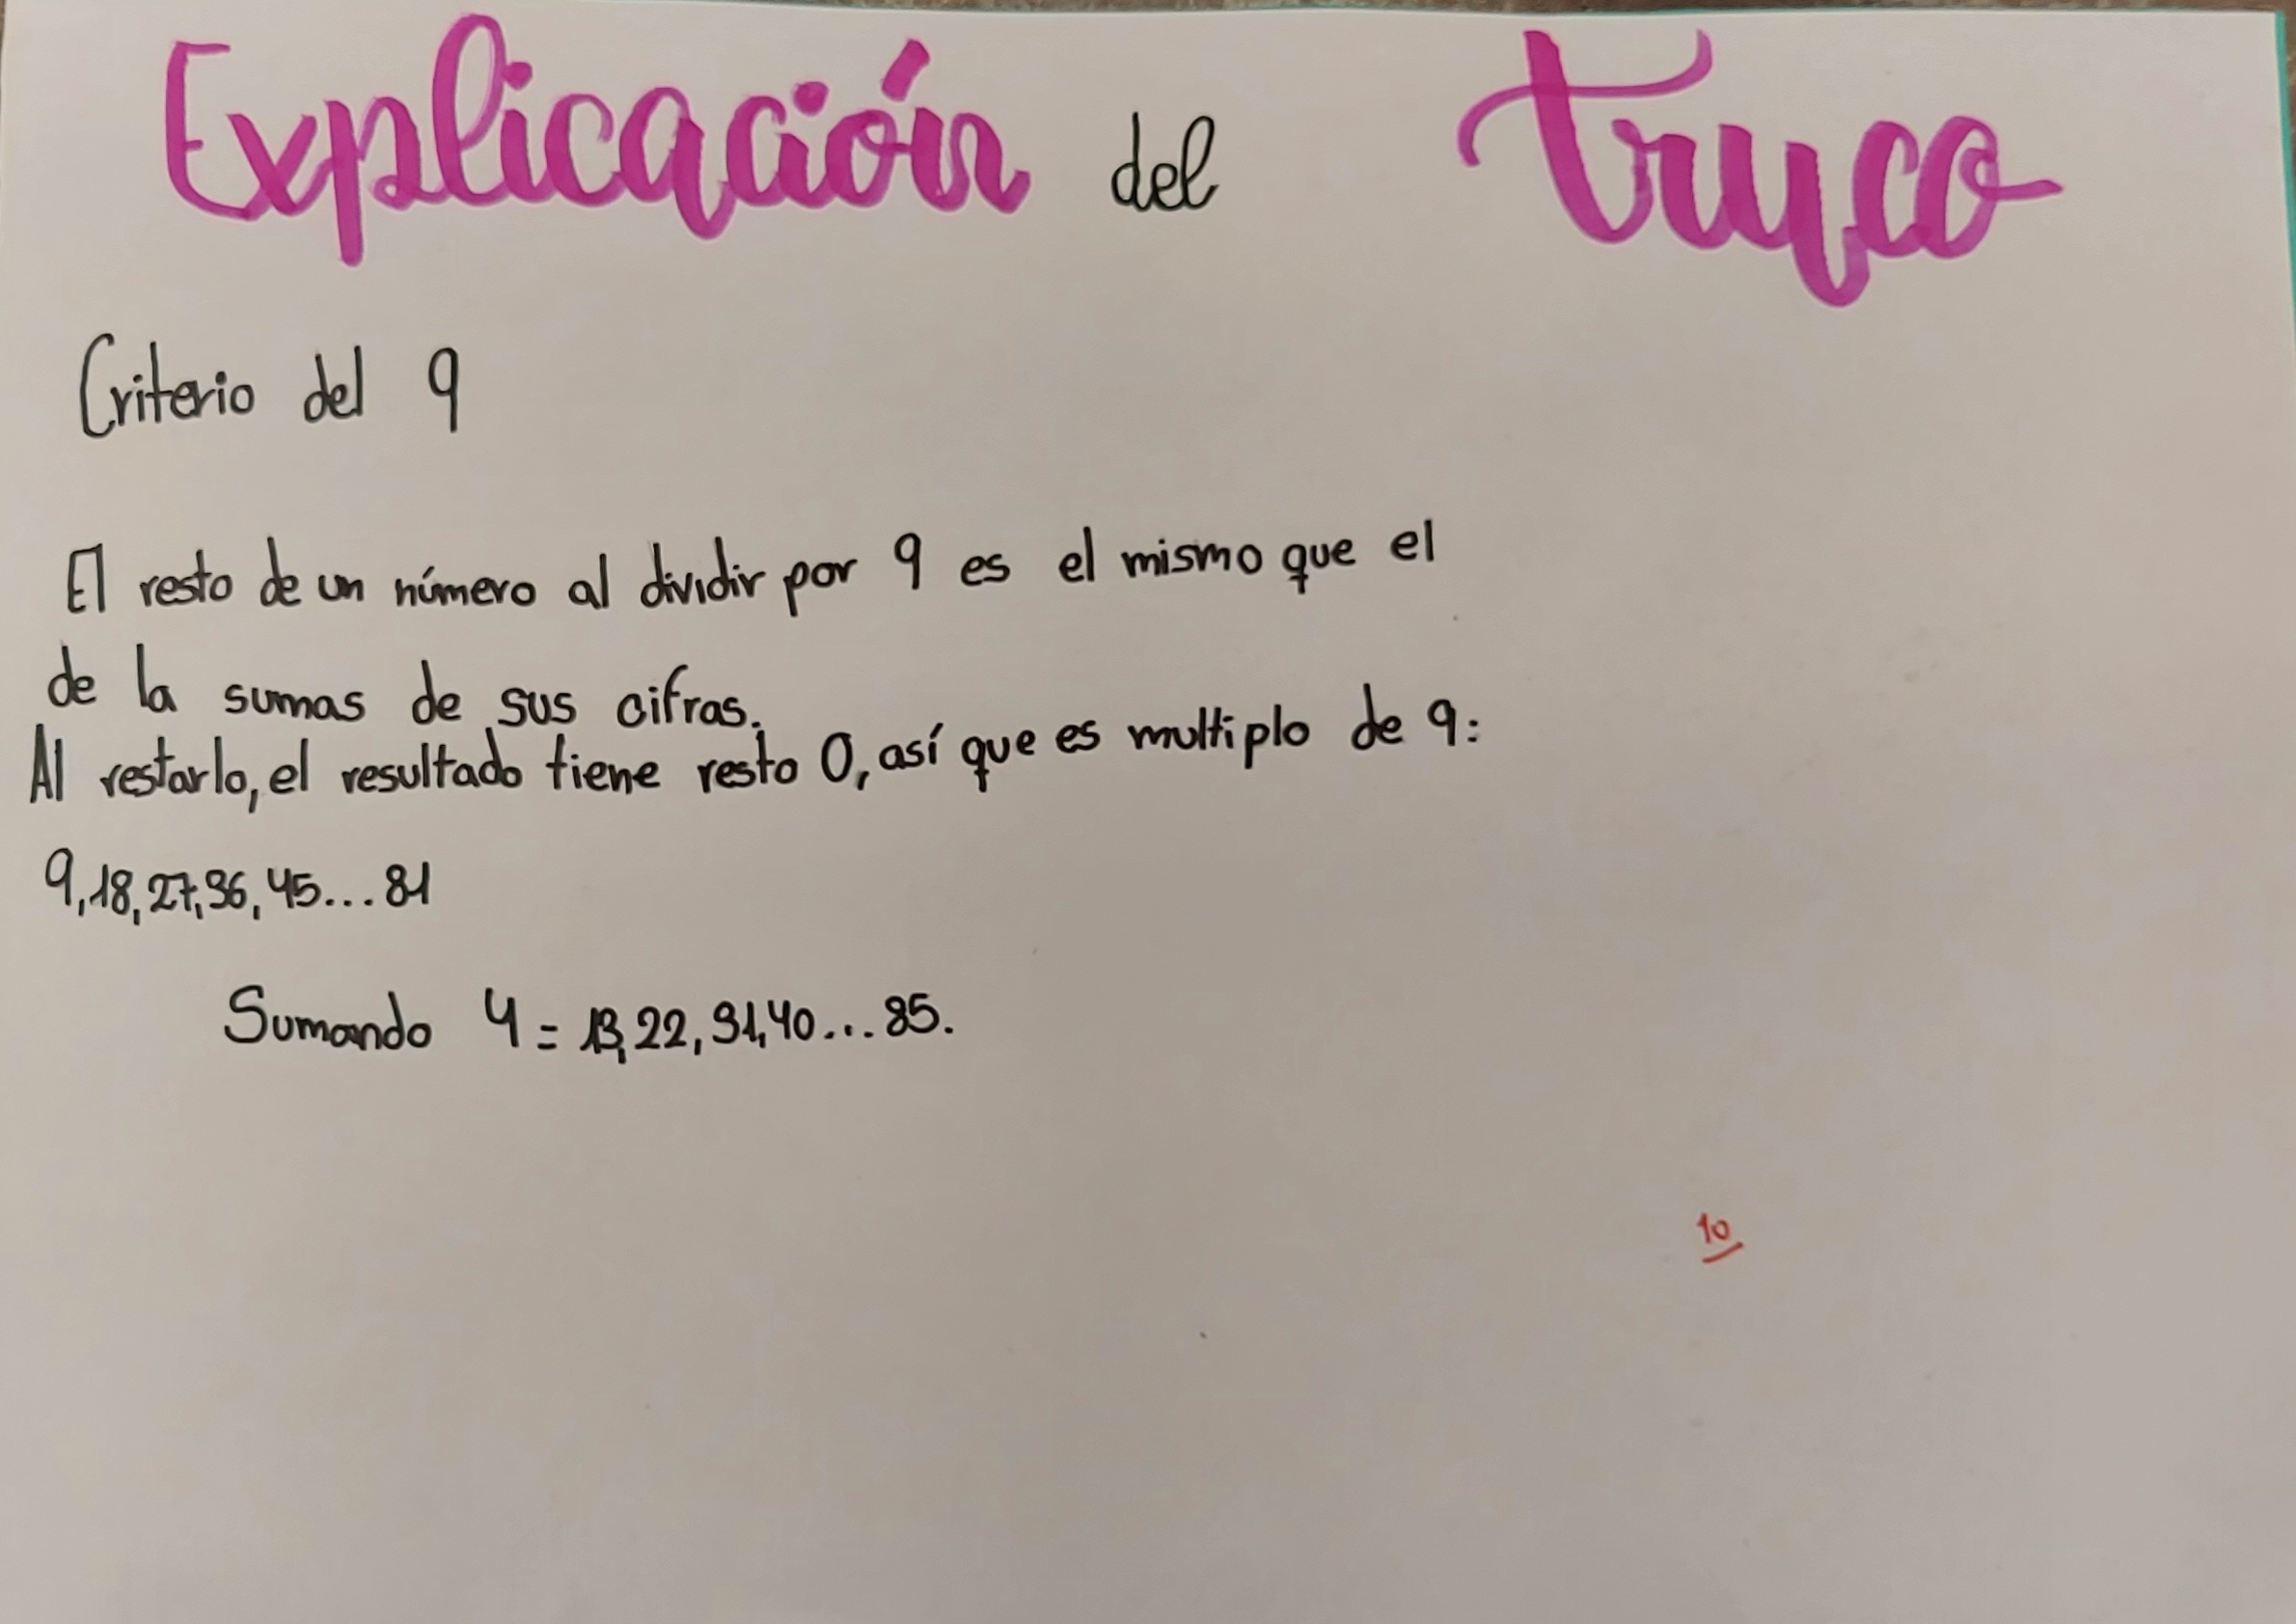 Explicación del truco
Criterio del 9
El resto de un número al dividir por 9 es el mismo que el
de la sumas de sus cifras.
Al restarlo, el resultado tiene resto 0, así que es multiplo de 9:
9, 18, 27, 36, 45... 81
Sumando 4 = 13, 22, 31, 40... 85.
10